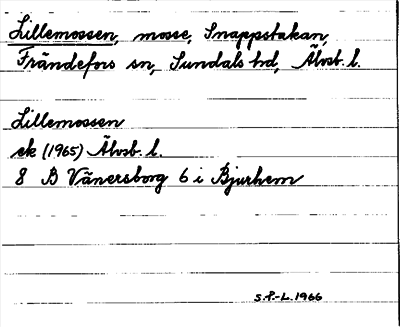 Lillemossen, mosse, Snappstakan,
Frändefors sn, Sundals hd, Älvsb. l.
Lillemossen
ek (1965) Älvsb. l.
8 B Vänersborg 6 i Bjurhem
S.P.-L. 1966